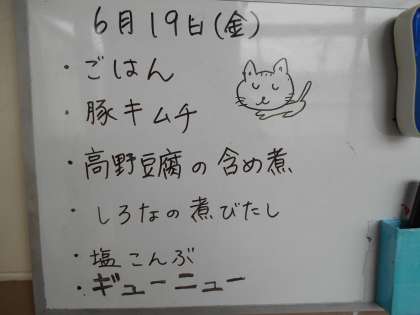 6月19日(金)
・ごはん
・豚キムチ
・高野豆腐の含め煮
・しろなの煮びたし
・塩こんぶ
・ギューニュー